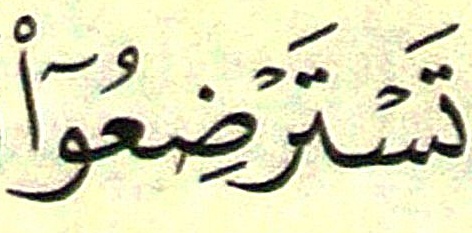 تَسْتَرْضِعُوٓا۟